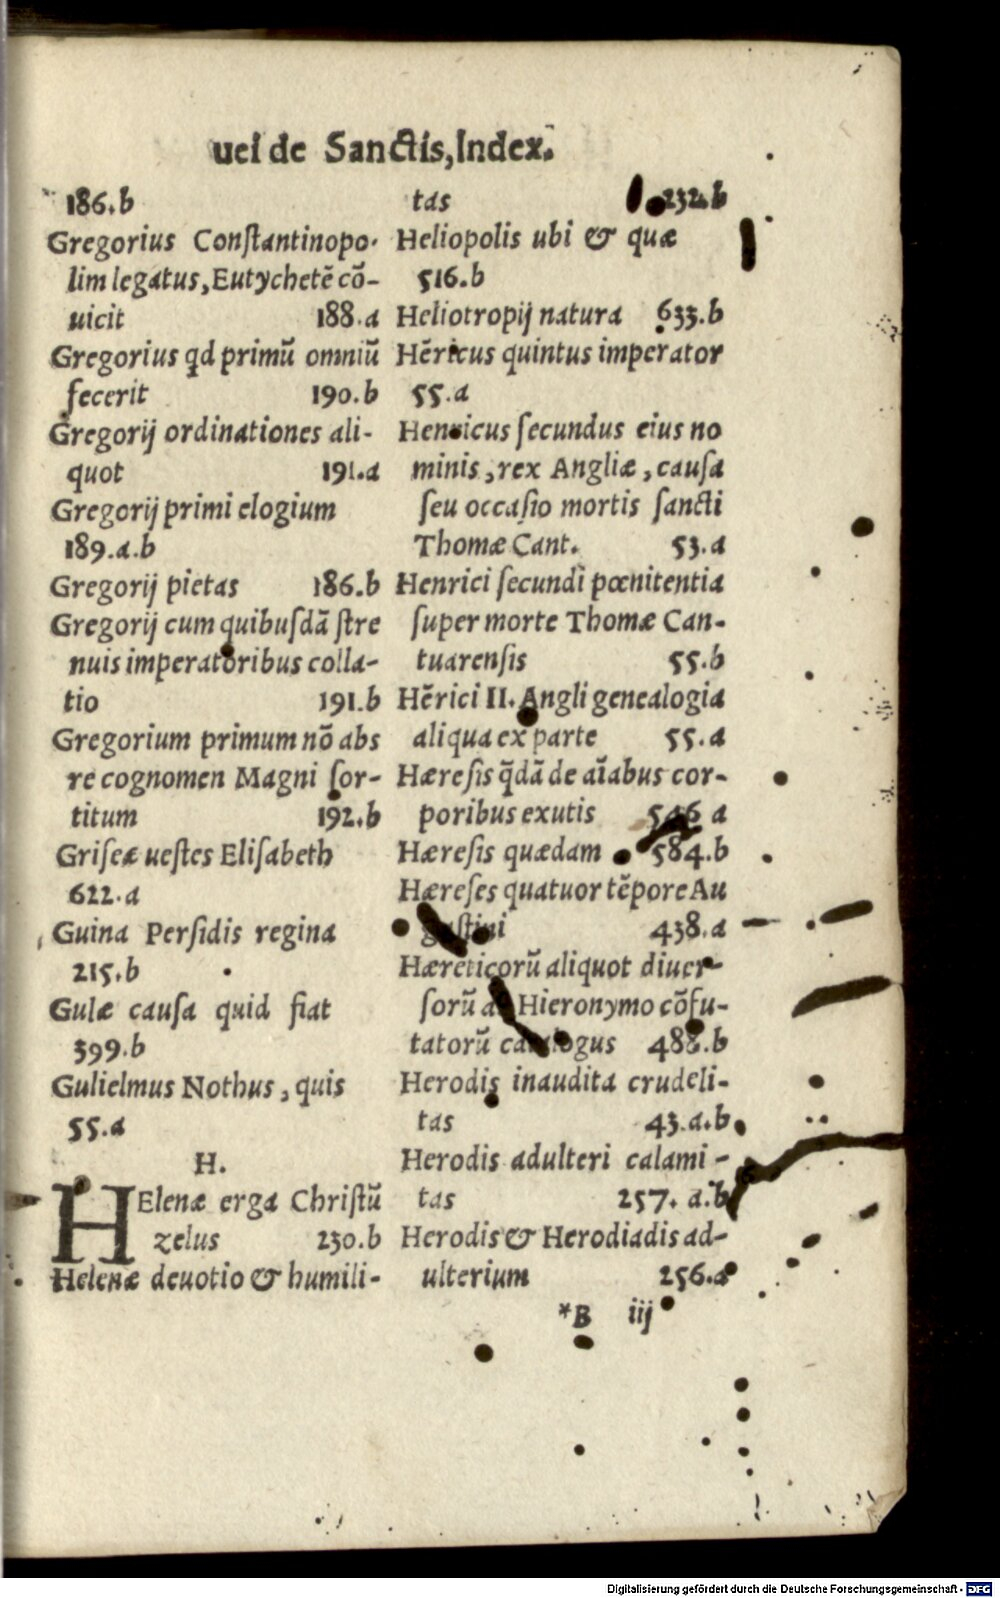 uel de Sanctis, Index.
186.b
Gregorius Conſtantinopo-
lim legatus, Eutychetẽ cõ-
uicit 188.a
Gregorius qd primũ omniũ
fecerit 190.b
Gregorij ordinationes ali-
quot 191.a
Gregorij primi elogium
189.a.b
Gregorij pietas 186.b
Gregorij cum quibuſdã ſtre
nuis imperatoribus colla-
tio 191.b
Gregorium primum nõ abs
re cognomen Magni ſor-
titum 192.b
Griſeæ ueſtes Eliſabeth
622.a
Guina Perſidis regina
215.b
Gulæ cauſa quid fiat
399.b
Gulielmus Nothus, quis
55.a
H.
HElenæ erga Chriſtũ
zelus 230.b
Helenæ deuotio & humili-
tas 232.b
Heliopolis ubi & quæ
516.b
Heliotropij natura 633.b
Hẽricus quintus imperator
55.a
Henricus ſecundus eius no
minis, rex Angliæ, cauſa
ſeu occaſio mortis ſancti
Thomæ Cant. 53.a
Henrici ſecundi pœnitentia
ſuper morte Thomæ Can-
tuarenſis 55.b
Hẽrici II. Angli genealogia
aliqua ex parte 55.a
Hæreſis q̃dã de aĩabus cor-
poribus exutis a
Hæreſis quædam 584.b
Hæreſes quatuor tẽpore Au
guſtini 438.a
Hæreticorũ aliquot diuer-
ſorũ a Hieronymo cõfu-
tatorũ catalogus 488.b
Herodis inaudita crudeli-
tas 43.a.b
Herodis adulteri calami-
tas 257. a.b
Herodis & Herodiadis ad-
ulterium 256.a
*B iij
Digitalisierung gefördert durch die Deutsche Forschungsgemeinschaft - DFG